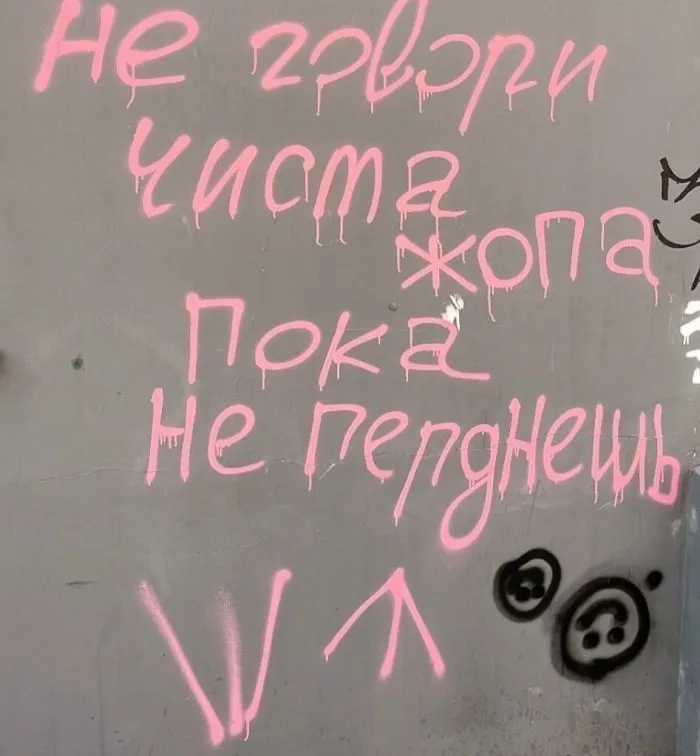 не говори
чиста
жопа
пока
не перднешь